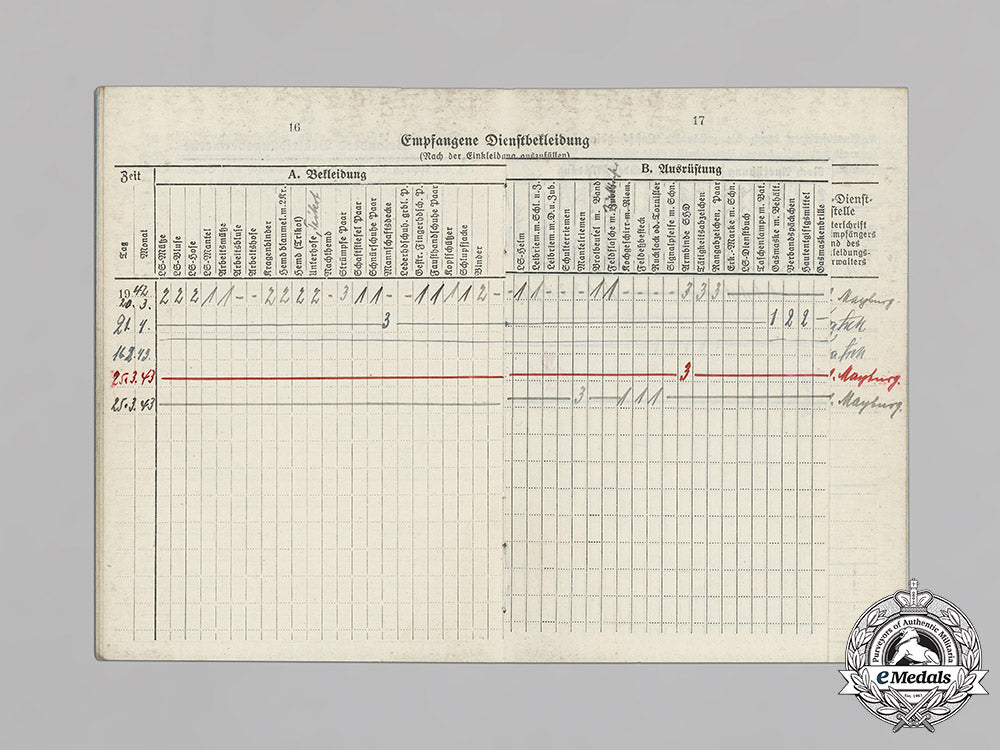 16
17
Empfangene Dienstbekleidung
(Nach der Einkleidung auszufüllen)
Zeit
A. Bekleidung
B. Ausrüstung
Dienst-
stelle
Tag
Monat
LS-Mütze
LS-Bluse
LS-Hose
LS-Mantel
Arbeitsmütze
Arbeitsbluse
Arbeitshose
Kragenbinder
Hemd blau m. 2 Kr.
Hemd (Trikot)
Unterhose
Nachthemd
Strümpfe Paar
Schaftstiefel Paar
Schnürschuhe Paar
Mannschaftsdecke
Lederhdschuh. grbl. P.
Gestr. Fingerhdsch. P.
Fausthandschuhe Paar
Kopfschützer
Schlupfjacke
Binder
LS-Helm
Leibriem. m. Schl. u. J.
Leibriem. m. D. u. Zub.
Schulterriemen
Mantelriemen
Brotbeutel m. Band
Feldflasche m.
Kochgeschirr m. Riem.
Feldbesteck
Rucksack od. Tornister
Signalpfeife m. Schn.
Armbinde SHD
Tätigkeitsabzeichen
Rangabzeichen, Paar
Erk.-Marke m. Schn.
LS-Dienstbuch
Taschenlampe m. Bat.
Gasmaske m. Behält.
Verbandspäckchen
Hautentgiftgsmittel
Gasmaskenbrille
terschrift
mpfängers
nd des
leidungs-
rwalters
1942
20. 3. 2 2 2 1 1 - - 2 2 2 2 - 3 1 1 - - 1 1 1 1 2 - 1 1 - - - 1 1 - - - - 3 3 3 Mayburg
21. 4. 3 1 2 2 -
16.2.43.
25.3.43 3 Mayburg.
25.3.43 3 1 1 1 Mayburg.
Purveyors of Authentic Militaria
eMedals